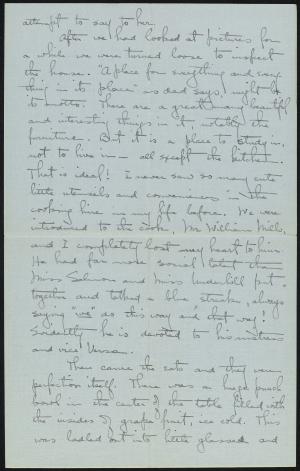 attempt to say to her.
After we had looked at pictures for
a while we were turned loose to inspect
the house. "A place for everything and every-
thing in its place" as dad says, might be
its motto. There are a great many beautiful
and interesting things in it, notably the
furniture. But it is a place to study in,
not to live in — all except the kitchen.
That is ideal! I never saw so many cute
little utensils and conveniences in the
cooking line in my life before. We were
introduced to the cook, Mr. William Mills,
and I completely lost my heart to him.
He had far more social talent than
Miss Salmon and Miss Underhill put
together and talked a blue streak, always
saying "we" do this way and that way!
Evidently he is devoted to his mistress
and vice versa.
Then came the eats and they were
perfection itself. There was a huge punch
bowl in the center of the table filled with
the insides of grape fruit, ice cold. This
was ladled out into little glasses and